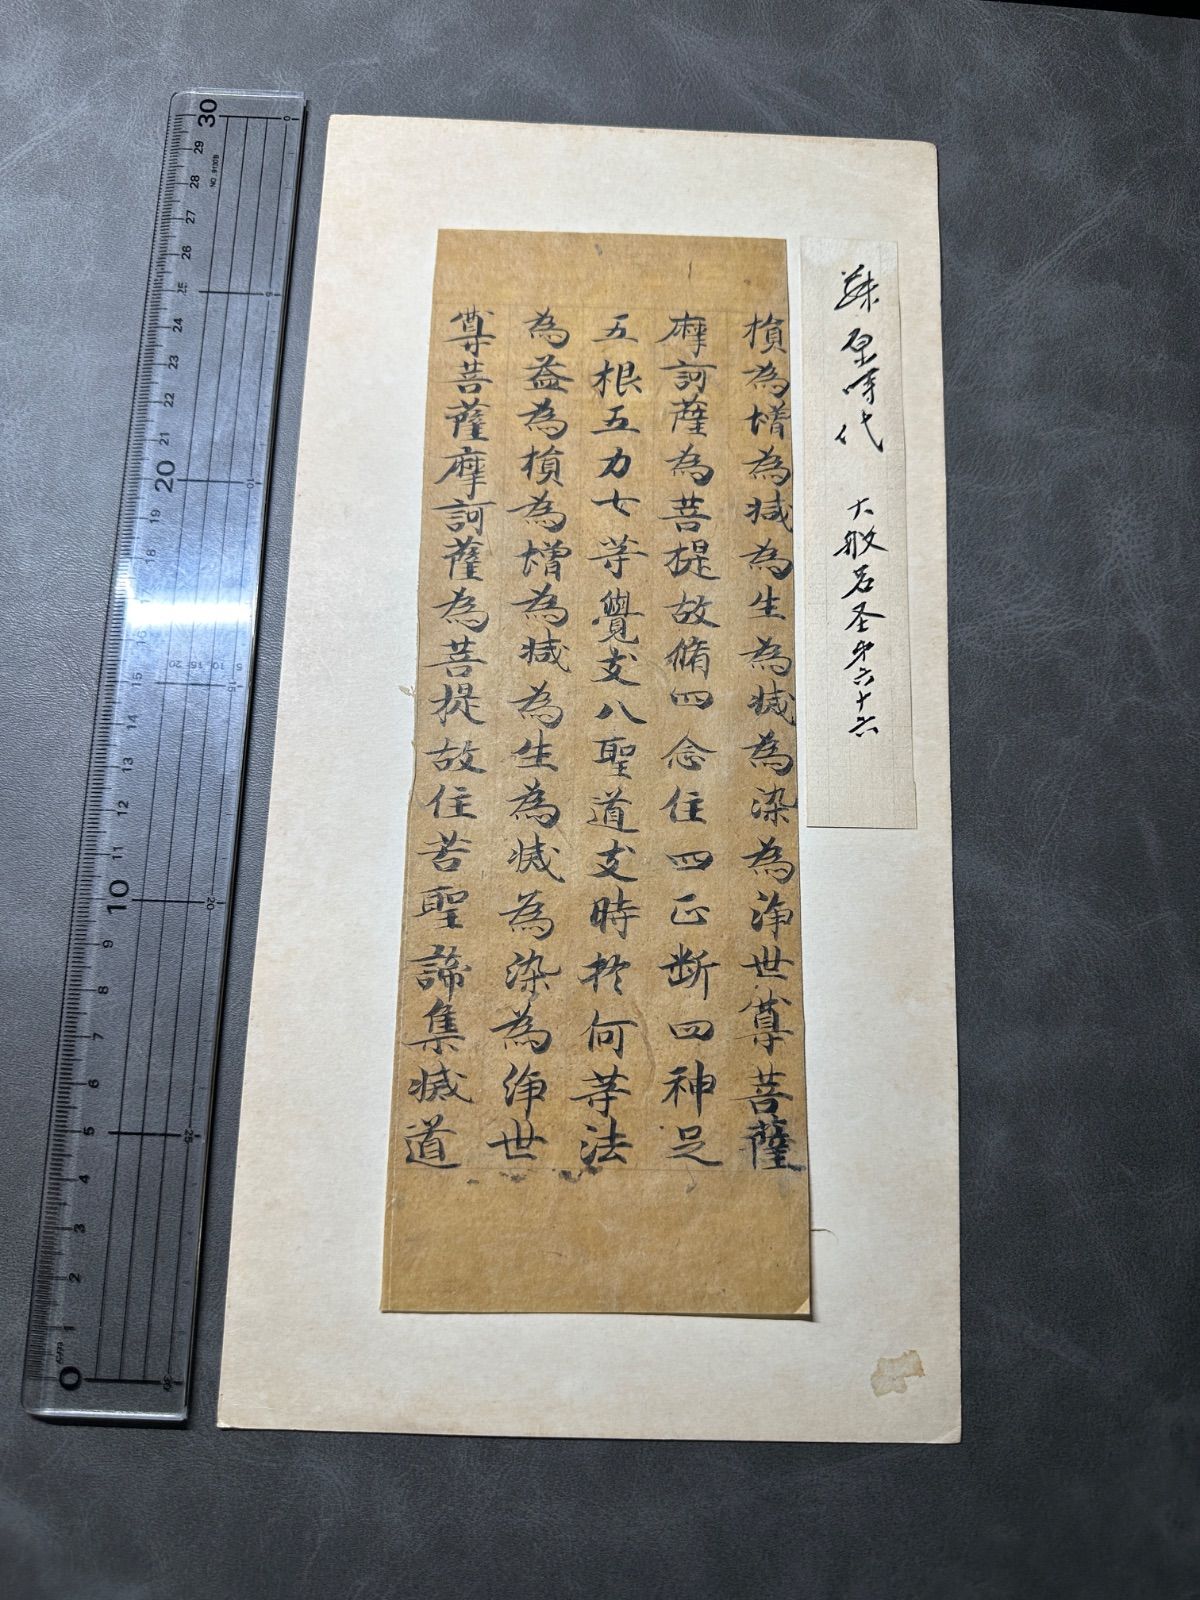 藤原時代 大般若圣第六十六
損為増為減為生為滅為染為浄世尊菩薩
摩訶薩為菩提故脩四念住四正断四神足
五根五力七等覺支八聖道支時於何等法
為益為損為増為減為生為滅為染為浄世
尊菩薩摩訶薩為菩提故住苦聖諦集滅道
30
29
28
27
26
25
24
23
22
21
20
19
18
17
16
15
14
13
12
11
10
9
8
7
6
5
4
3
2
1
0